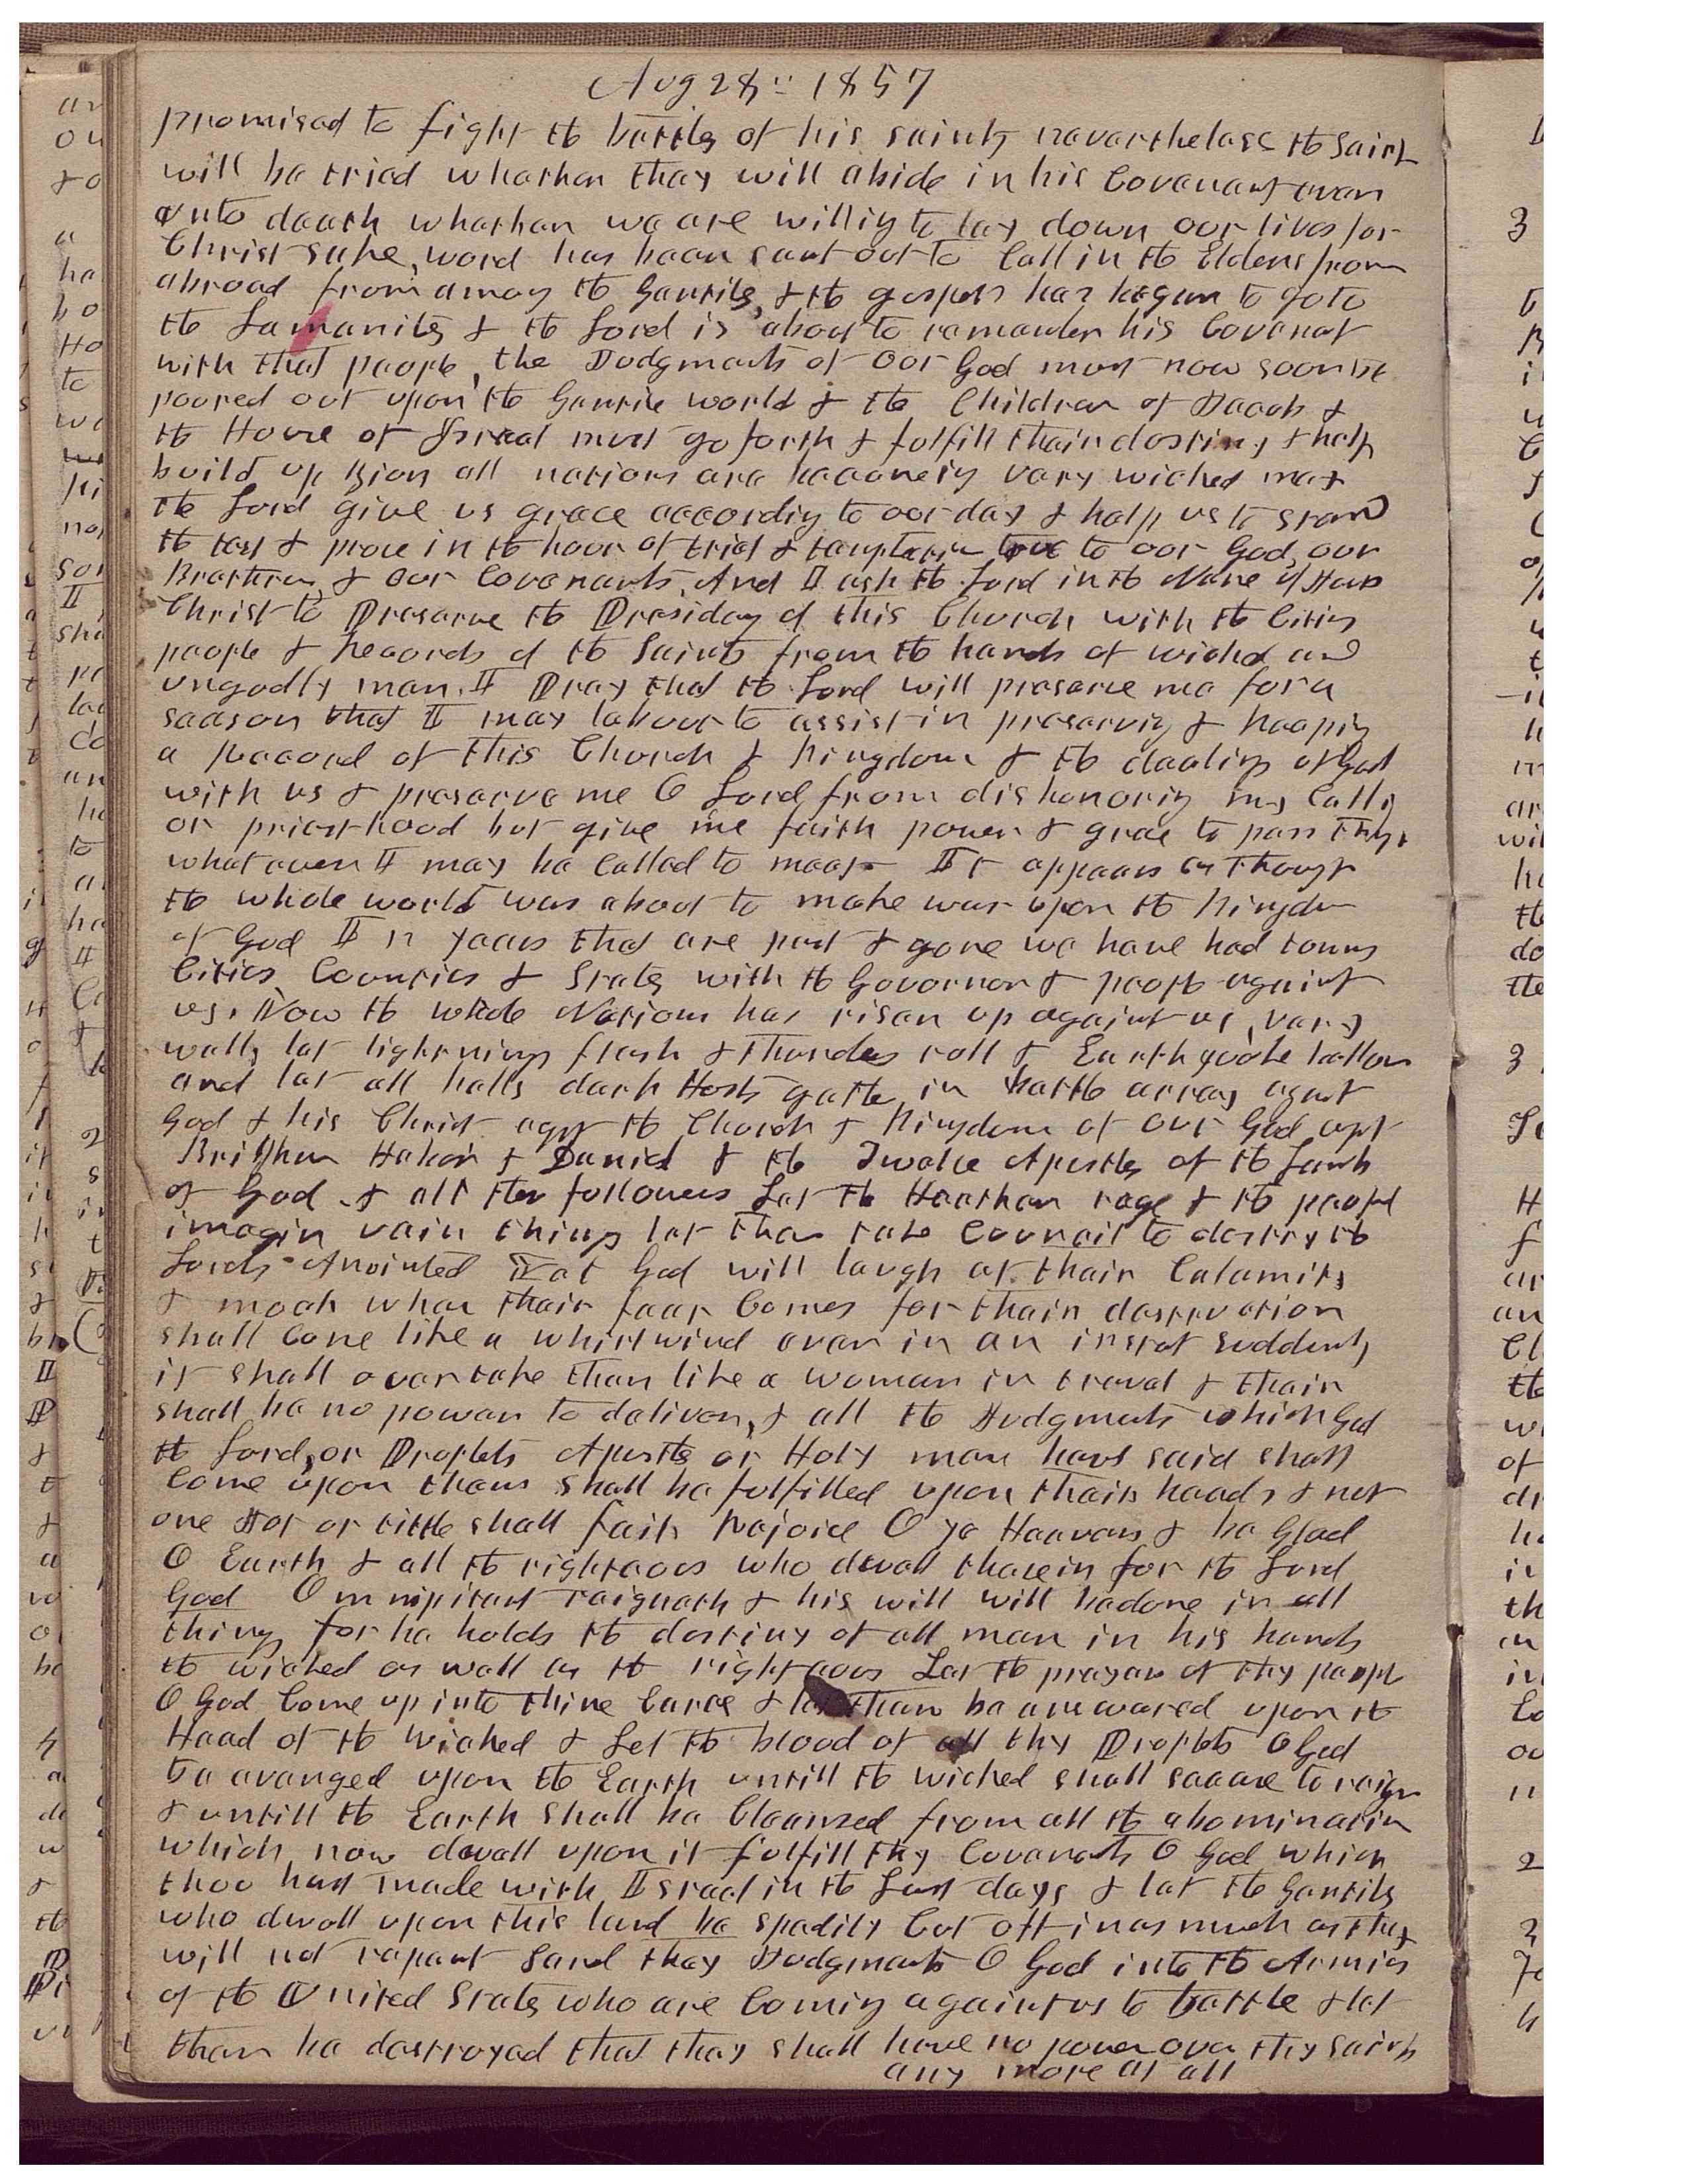 Aug 28th 1857
promised to fight the battles of his saints nevertheless the Saints
will be tried whether they will abide in his Covenant even
unto death whether we are willing to lay down our lives for
Christ sake, word has been sent out to Call in the Elders from
abroad from amog the Gentiles, & the gospels has begun to go to
the Lamanites & the Lord is about to remember his Covenant
with that people, the Judgments of our God must now soon be
poored out upon the Gentile world & the Children of Jacob &
the House of Israel must go forth & fulfill their destiny & help
build up Zion all nations are becomeing very wicked may
the Lord give us grace according to our day & help us to stand
the test & prove in the hour of trial & temptation true to our God, our
Brethren, & our Covenants, And I ask the Lord in the Name of Jesus
Christ to Preserve the Presidency of this Church with the Cities
people & Records of the Saints from the hands of wicked and
ungodly men. I Pray that the Lord will preserve me for a
season that I may labour to assist in preserving & keeping
a Record of this Church & Kingdom & the dealings of God
with us & preserve me O Lord from dishonoring my Calling
or priesthood but give me faith power & grace to pass through
whatever I may be Called to meet. It appears as though
the whole world was about to make war upon the Kingdom
of God In years that are past & gone we have had towns
Cities Counties & States with the Governor & people against
us. Now the whole Nation has risen up against us, very
well, let lightnings flash & thunders roll & Earthquake bellow
and let all hells dark Hosts gather in battle array against
God & his Christ agst the Church & Kingdom of our God agst
Brigham Heber & Daniel & the Twelve Apostles of the Lamb
of God & all their followers Let the Heathen rage & the people
imagin vain things let them take Council to destroy the
Lords Anointed Yet God will laugh at their Calamity
& mock when their fear Comes for their destruction
shall Come like a whirlwind even in an instant suddenly
it shall overtake them like a woman in traval & their
shall be no power to deliver, & all the Judgments which God
the Lord, or Prophets Apostles or Holy men have said shall
Come upon them shall be fulfilled upon their heads & not
one Jot or tittle shall fail, Rejoice O ye Heavens & be Glad
O Earth & all the righteous who dwell therein for the Lord
God Omnipitant reigneth & his will will be done in all
things for he holds the destiny of all men in his hands
the wicked as well as the righteous Let the prayers of thy people
O God Come up into thine Eares & let them be answared upon the
Head of the wicked & Let the blood of all thy Prophets O God
be avenged upon the Earth untill the wicked shall seease to reign
& untill the Earth shall be Cleansed from all the abomination
which now dwell upon it fulfill thy Covenants O God which
thou hast made with Israel in the Last days & let the Gentiles
who dwell upon this land be spedily Cut off inasmuch as they
will not repent Send they Judgments O God into the Armies
of the United States who are Coming against us to battle & let
them be destroyed that they shall have no power over thy saints
any more at all